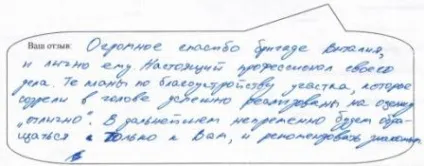 Ваш отзыв: Огромное спасибо бригаде Виталия,
и лично ему. Настоящий профессионал своего
дела. Те планы по благоустройству участка, которые
созрели в голове успешно реализованы на оценку
"отлично". В дальнейшем непременно будем обра-
щаться только к Вам, и рекомендовать знакомым